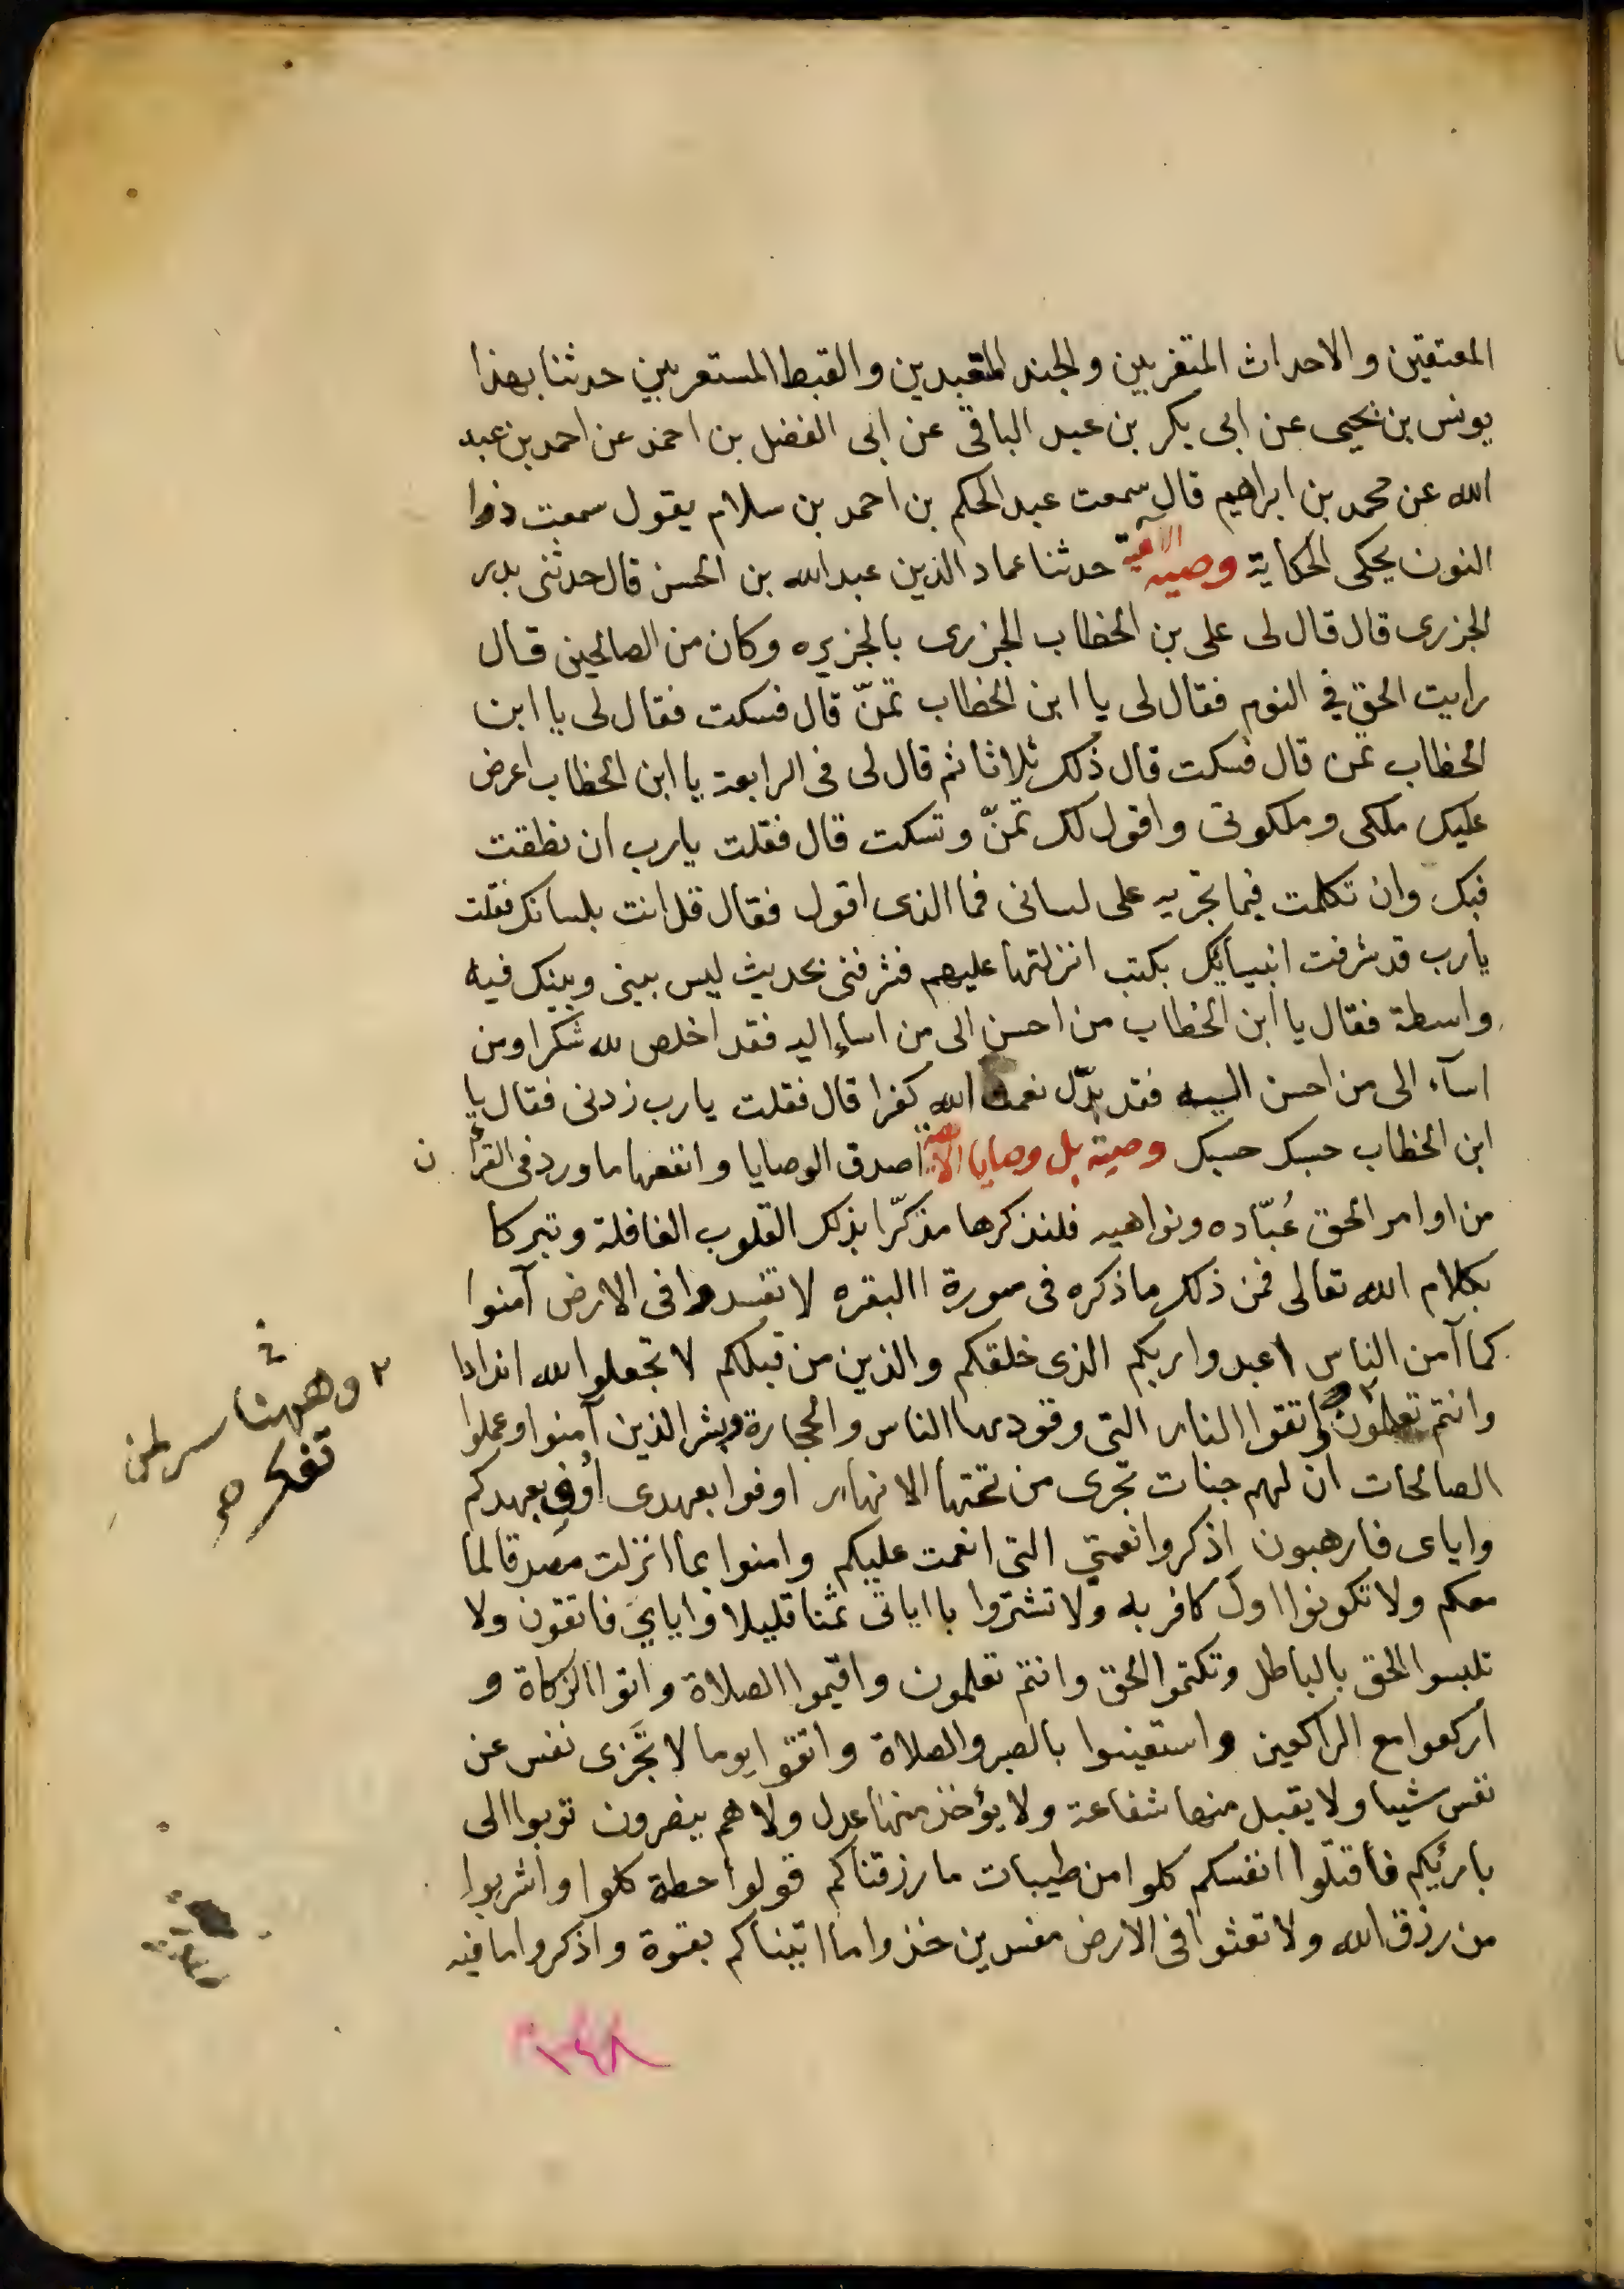 المعتقين والاحداث المتغربين والجند المتعبدين والقبط المستعربين حدثنا بهذا
يونس بن يحيى عن ابى بكر بن عبد الباقى عن ابى الفضل بن احمد عن احمد بن عبد
الله عن محمد بن ابراهيم قال سمعت عبد الحكم بن احمد بن سلام يقول سمعت ذوا
النون يحكى الحكاية وصيه الآهية حدثنا عماد الدين عبد الله بن الحسن قال حدثنى بدر
الجزرى قال قال لى على بن الخطاب الجزرى بالجزيره وكان من الصالحين قال
رايت الحق في النوم فقال لى يا ابن الخطاب تمنّ قال فسكت فقال لى يا ابن
الخطاب تمن قال فسكت قال ذلك ثلاثا ثم قال لى فى الرابعة يا ابن الخطاب اعرض
عليك ملكى وملكوتى واقول لك تمنّ وتسكت قال فقلت يارب ان نطقت
فبك وان تكلمت فيما تجريه على لسانى فما الذى اقول فقال قل انت بلسانك فقلت
يارب قد شرفت انبيائك بكتب انزلتها عليهم فشرفنى بحديث ليس بينى وبينك فيه
واسطة فقال يا ابن الخطاب من احسن الى من اساء اليه فقد اخلص لله شكرا ومن
اسآء الى من احسن اليه فقد بدّل نعمة الله كفرا قال فقلت يارب زدنى فقال يا
ابن الخطاب حسبك حسبك وصية بل وصايا الاهية اصدق الوصايا وانفعها ما ورد فى القرآن
من اوامر الحق عُبّاده ونواهيه فلنذكرها مذكّرا بذلك القلوب الغافلة وتبركا
بكلام الله تعالى فمن ذلك ما ذكره فى سورة االبقره لا تفسدوا فى الارض آمنوا
كما آمن الناس اعبدوا ربكم الذى خلقكم والذين من قبلكم لا تجعلوا لله اندادا
وانتم تعلمون ٢ واتقوا النار التى وقودها الناس والحجارة وبشر الذين آمنوا وعملوا
الصالحات ان لهم جنات تجرى من تحتها الانهار اوفوا بعهدى اُوفِ بعهدكم
واياى فارهبون اذكروا نعمتي التى انعمت عليكم وامنوا بما انزلت مصدقا لما
معكم ولا تكونوا اول كافر به ولا تشتروا باياتى ثمنا قليلا واياىَ فاتقون ولا
تلبسوا الحق بالباطل وتكتموا الحق وانتم تعلمون واقيموا الصلاة واتوا الزكاة و
اركعوا مع الراكعين واستعينوا بالصبر والصلاة واتقوا يوما لا تَجزى نفس عن
نفس شيا ولا يقبل منها شفاعة ولا يؤخذ منها عدل ولا هم ينصرون توبوا الى
بارئكم فاقتلوا انفسكم كلوا من طيبات ما رزقناكم قولوا حطة كلوا واشربوا
من رزق الله ولا تعثوا فى الارض مفسدين خذوا ما اتيناكم بقوة واذكروا ما فيه
٢ وههنا سر لمن
تفكر
١٤٨